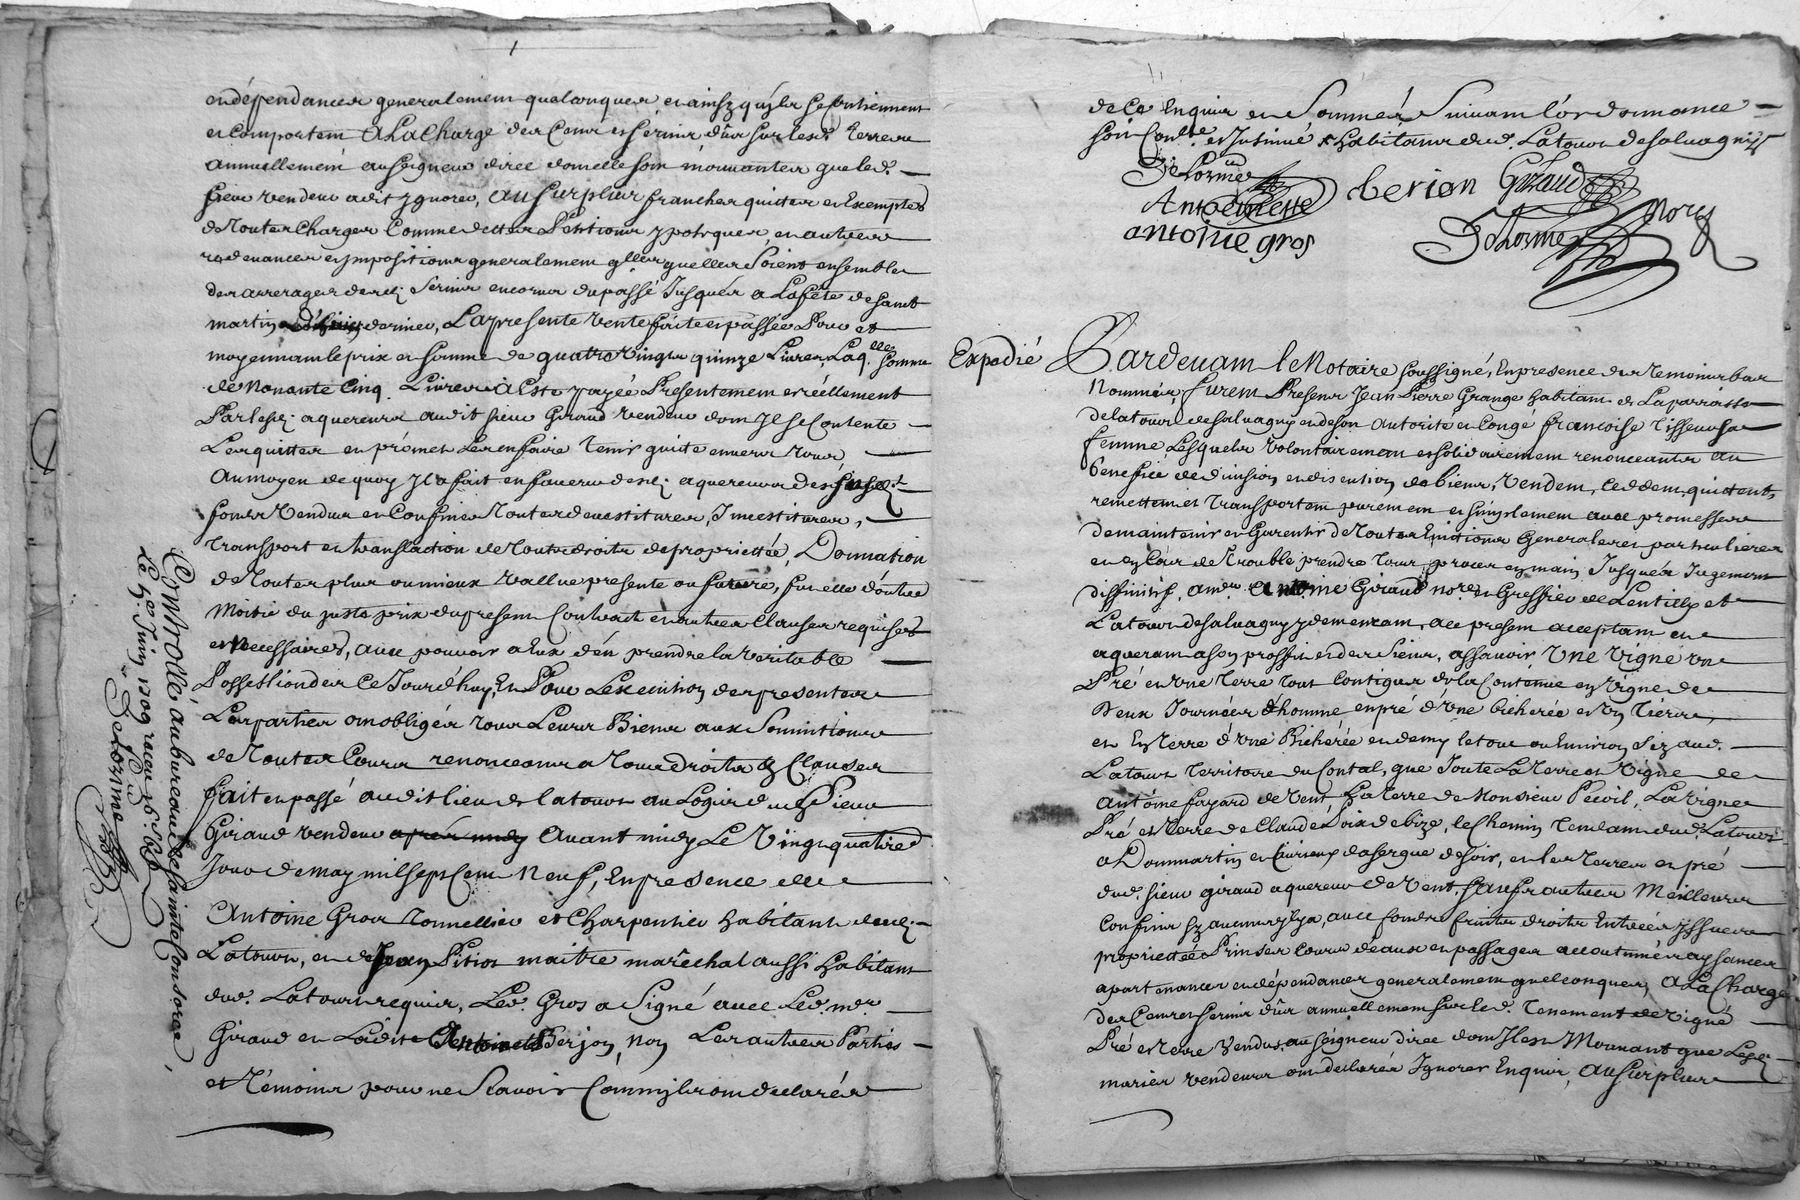 endépendances generalement quelconques, et ainsy qu'jls se contiennent
et comportent A La Charge des Cens et servis dûs sur lesd. terres
annuellement au seigneur direct dont elle sont mouvantes que led.
sieur vendeur a dit ygnorer, au surplus franches quittes et Exemptes
de toutes charges comme dettes Pensions ypoteques, et autres
redevances et jmpositions generalement qlles quelles soient ensemble
des arrerages desd. servis encorus du passé jusques a La fête de saint
martin dernier, La presente vente faitte et passée Pour et
moyennant le prix et somme de quatre vingts quinze Livres, Laq.lle somme
de Nonante Cinq Livres à Esté payée Presentement et réellement
Par lesd. aquereurs audit sieur Giraud vendeur dont Jl se Contente
Les quitte et prómet les en faire tenir quitte envers tous
Au moyen de quoy Jl a fait en faveur desd. aquereurs des susd.
fonds vendus et Confinés toutes devestitures, Jnvestitures,
transport et translaction de tous droits de propriettée, Donnation
de toutes plus ou mieux vallue presente ou future, fut elle d'outre
Moitié du juste prix du present Contract et autres Clauses requises
et Necessaires, avec pouvoir a Eux d'en prendre la veritable
Possession des Ce Jourd'huy, Et Pour L'execution des presentes
Les parties ont obligées tous Leurs Biens aux Soumitions
de toutes Cours renonceant a tous droits & Clauses
fait et passé audit lieu de la tour au Logis dud. Sieur
Giraud vendeur après midy Avant midy Le Vingt quatre
Jour de may mil sept Cent Neuf, En presence de
Antoine Gros Tonnellier et Charpentier habitant dud.
Latour, et de Jean Pitiot maître maréchal aussi habitant
dud. Latour requis, Led. Gros a Signé avec Led. mr.
Giraud et Ladite Antoinette Berjon, Non Les autres Parties
et témoins pour ne Scavoir Comm'jls ont declarés
Controllé au bureau de sainte Consorce,
Le Juin 1709 receu
Delorme
de Ce Enquis et Sommés Suivant l'ordonnance
soit Con.lé et Insinué & habitans dud. Latour de salvagny
De Lorme
Antoinette berion Giraud
antoine gros
Delorme Nore
Expedié
Pardevant le Notaire soussigné, En presence des temoins bas
Nommés, furent Presens Jean Pierre Grange habitant de Laparrasse
de latour de salvagny et de son autorité et congé francoise tisseur sa
femme Lesquels volontairement et solidairement renonceants au
benefice de division et discution de biens, vendent, ceddent, quittent,
remettent et transportent purement et simplement avec promesse
de maintenir et Garentir de toutes Evictions Generales et particulieres
et en Cas de trouble prendre tour proces en main Jusques a Jugement
diffinitif, a mr. Antoine Giraud nore. et Greffier de Lentilly et
Latour de salvagny y demeurant, ace present acceptant et
aquerant a son proffit et des siens, assavoir, Une vigne une
Pré et Une terre tout Contigus de la Contenue en vigne de
Deux Journées d'homme en pré d'Une bicherée et Un tiers,
et En terre d'Une Bicherée et demy le tout ou Environ Sis aud.
Latour territoire du Contal, que Joute La terre et vigne de
Antoine fayard de vent, La terre de Monsieur Pecoil, La vigne
Pré et terre de Claude Loix de bize, le Chemin tendant dud. Latour
a Dommartin et Civrieux de serque de soir, et les terres et pré
dud. sieur giraud aquereur de vent, sauf autres Meilleurs
Confins sy aucuns y a, avec fonds fruits droits Entrées yssues
propriettées Prinses Cours de aux et passages accoutumés aysances
apartenances et dépendances generalement quelconques, A La Charge
des Cens et servis dûs annuellement sur led. tenement de vigne
Pré et terre vendus, au seigneur direct dont Jl est Mouvant que Lesd.
mariés vendeurs ont declarés Ignorer Enquis, Au surplus